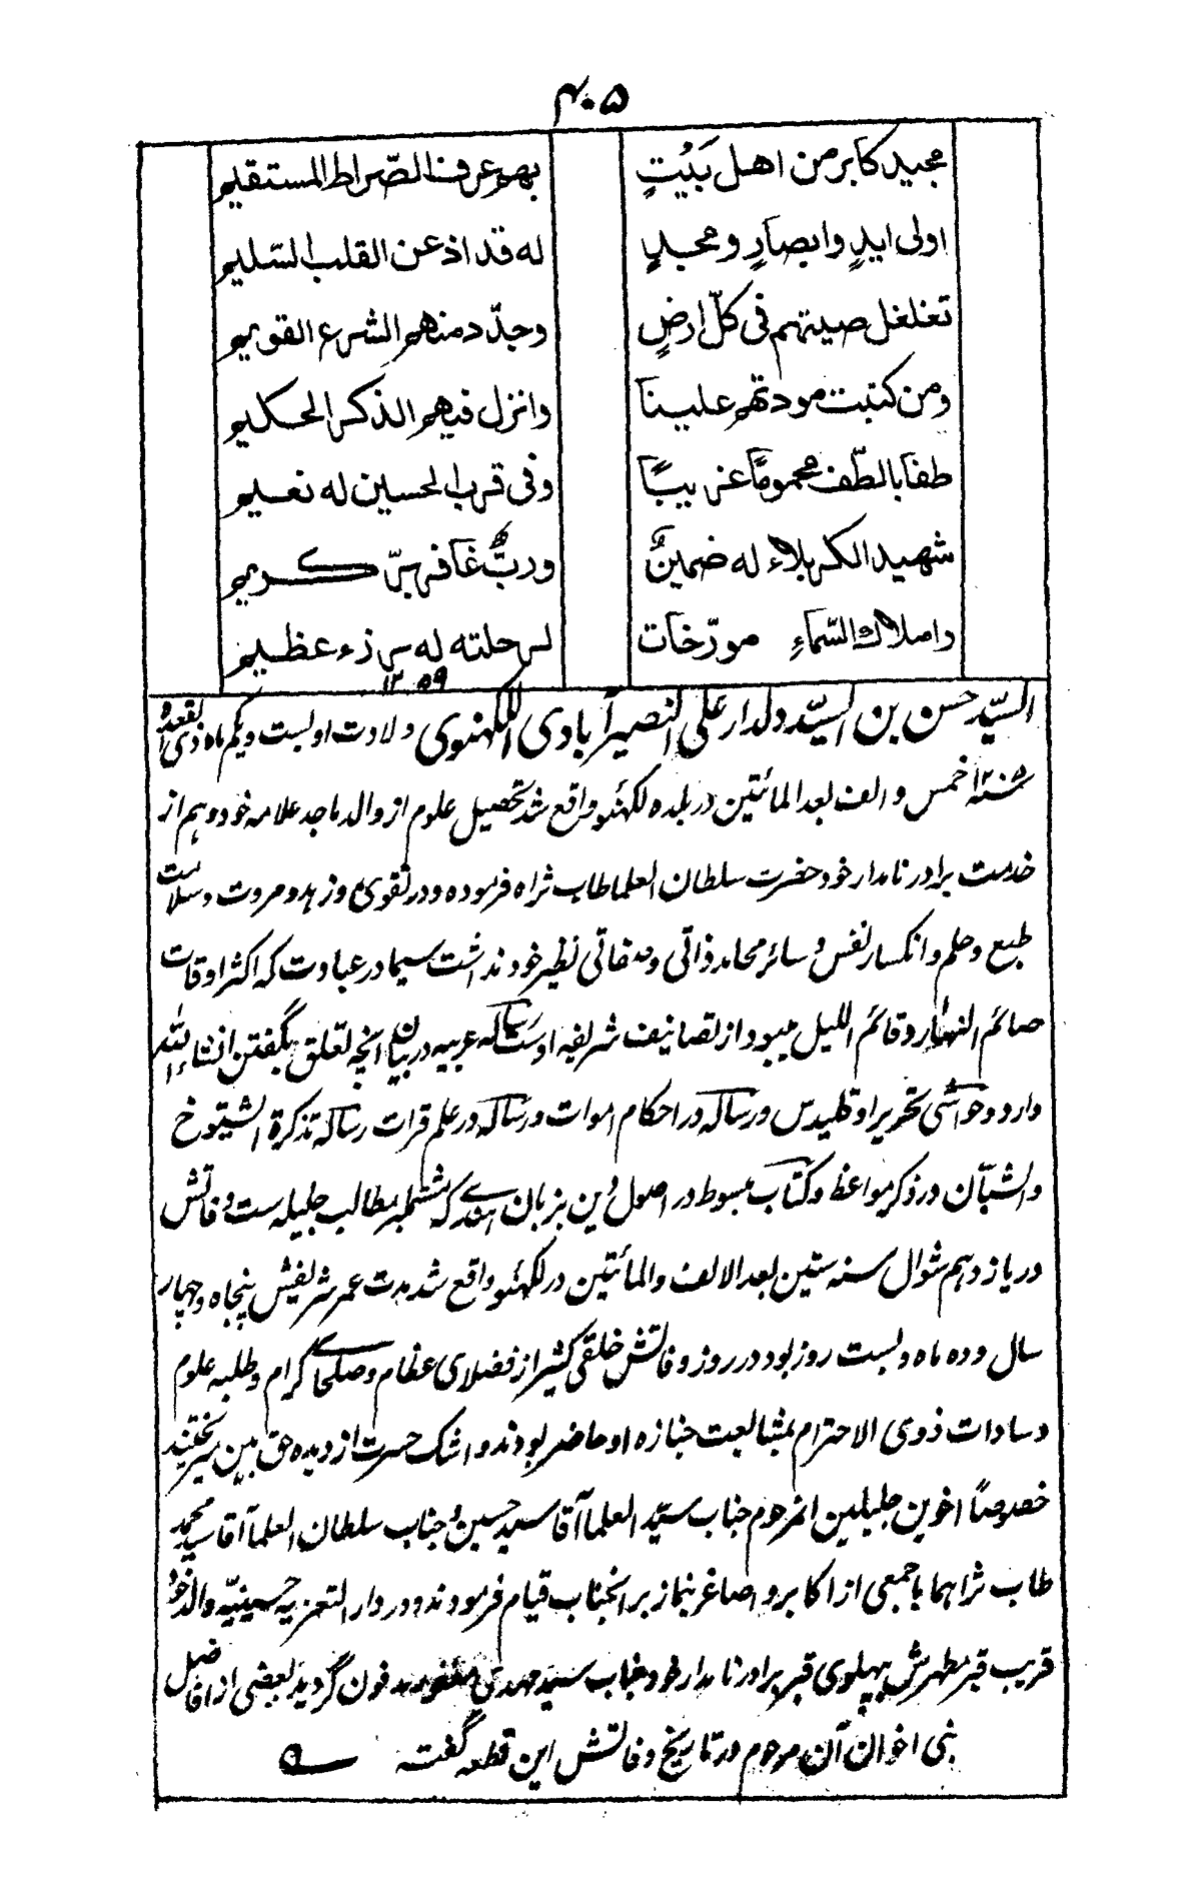 ۴۰۵
مجید کابر من اهل بَیْتٍ بهم عرف الصّراط المستقیم
اولی ایدٍ وابصارٍ ومجدٍ له قد اذعن القلب السّلیم
تغلغل صیتهم فی کلّ ارضٍ وجدّد منهم الشرع القویم
ومن کتبت مودتهم علینا وانزل فیهم الذکر الحکیم
طفا بالطّف محمومًا غریبًا وفی قرب الحسین له نعیم
شهید الکربلاء له ضمینٌ وربٌّ غافر برّ کریم
واملاک السّماءِ مورّخات لرحلته له رزء عظیم
۱۲۵۹
السیّد حسن بن السیّد دلدار علی النصیرآبادی اللکهنوی ولادت او بست و یکم ماه ذی القعده
سنه ۱۲۰۵ خمس و الف بعد المائتین در بلده لکهنؤ واقع شد تحصیل علوم از والد ماجد علامه خود و هم از
خدمت برادر نامدار خود حضرت سلطان العلما طاب ثراه فرموده و در تقوی و زهد و مروت و سلامت
طبع و حلم و انکسار نفس و سائر محامد ذاتی و صفاتی نظیر خود نداشت سیما در عبادت که اکثر اوقات
صائم النهار و قائم اللیل میبود از تصانیف شریفه اوست رساله عربیه در بیان آنچه تعلق بگفتن انشاء الله
دارد و حواشی تحریر اوقلیدس و رساله در احکام اموات و رساله در علم قرات رساله تذکرة الشیوخ
والشبّان در ذکر مواعظ و کتاب مبسوط در اصول دین بزبان هندی که مشتمل بمطالب جلیله ست وفاتش
در یازدهم شوال سنه ستین بعد الالف والمائتین در لکهنؤ واقع شد مدت عمر شریفش پنجاه و چهار
سال و ده ماه و بست روز بود در روز وفاتش خلقی کثیر از فضلای عظام و صلحای کرام و طلبه علوم
و سادات ذوی الاحترام بمشایعت جنازه او حاضر بودند و اشک حسرت از دیده حق بین میریختند
خصوصاً اخوین جلیلین انمرحوم جناب سیّد العلما آقا سید حسین و جناب سلطان العلما آقا سید محمد
طاب ثراهما با جمعی از اکابر و اصاغر بنماز بر انجناب قیام فرمودند و در دار التعزیه حسینیّه والد خود
قریب قبر مطهرش بپهلوی قبر برادر نامدار خود جناب سید مهدی مغفور مدفون گردید بعضی از افاضل
بنی اخوان آن مرحوم در تاریخ وفاتش این قطعه گفته